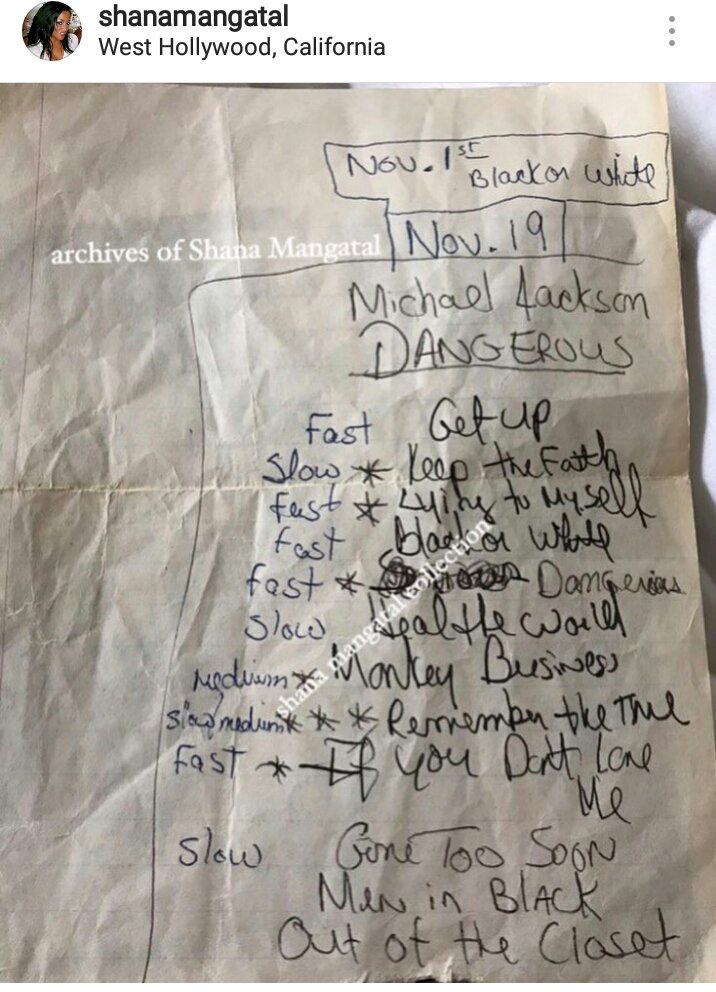 shanamangatal
West Hollywood, California
Nov. 1st
Black or White
archives of Shana Mangatal
Nov. 19
Michael Jackson
DANGEROUS
Fast Get up
Slow * Keep the Faith
fast * Lying to Myself
fast Black or White
fast * Dangerous
Slow Heal the World
shana mangatal collection
Medium * Monkey Business
slow medium * * * Remember the Time
Fast * If you Dont Love
Me
Slow Gone Too Soon
Men in BlACK
Out of the Closet